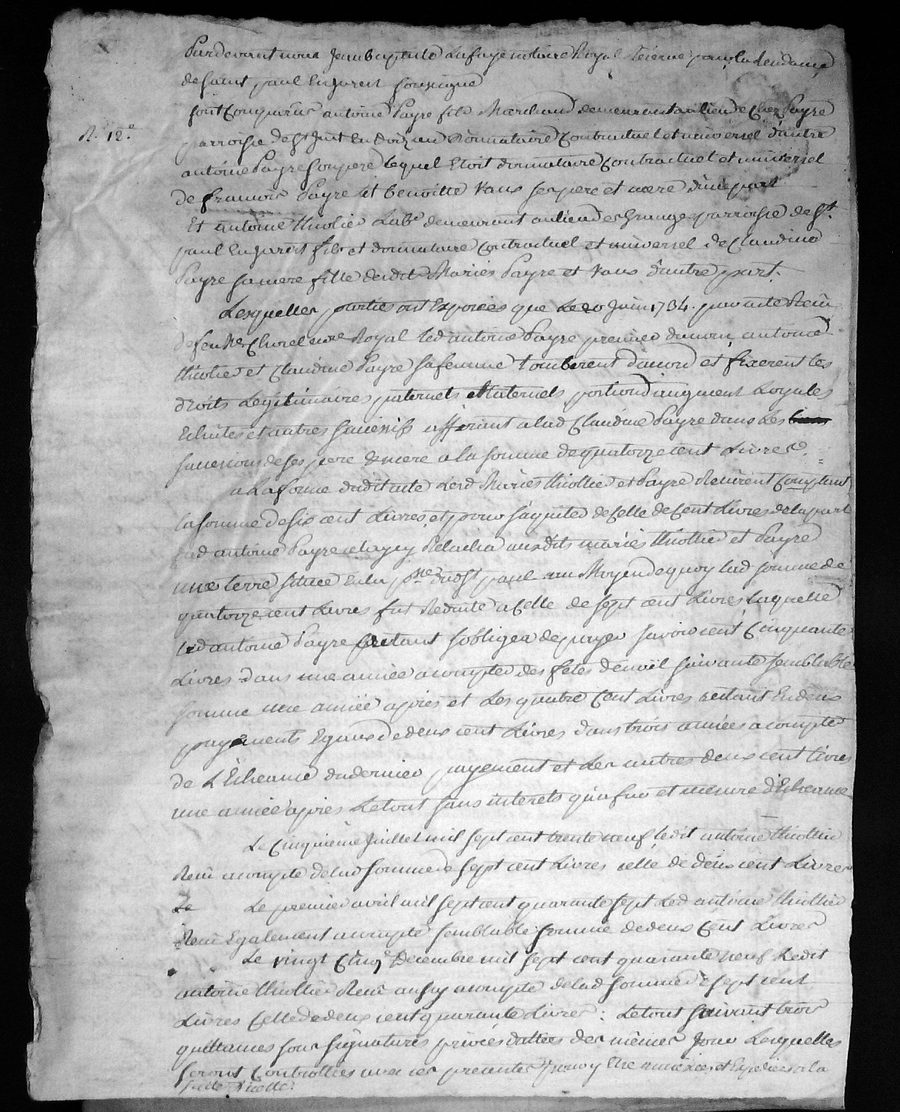 Pardevant nous Jean baptiste Lafaye notaire Royal Réservé pour la Residance
de saint paul En Jarest soussigné
sont Comparus antoine Payre fils Marchand demeurant au lieu de Chez Payre
N. 12e
parroisse de St Just En Doizieu Donnataire Contractuel et universel d'autre
antoine Payre son pere lequel Etoit donnataire Contractuel et universel
de francois Payre et Benoitte Vans ses pere et mere d'une part
Et antoine thiollier Labr demeurant au lieu des Granges parroisse de St.
paul En Jarest fils et donnataire Contractuel et universel de Claudine
Payre sa mere fille desdits Mariés Payre et Vans d'autre part.
Lesquelles parties ont Exposées que Le 20 Juin 1734. par acte Reçu
de feu Me Chorel nre Royal led antoine Payre premier du nom, antoine
thiollier et Claudine Payre sa femme tomberent d'acord et fixerent les
droits Legitimaires paternels et Maternels portion d'augment Loyales
Echutes et autres afferant a lad Claudine Payre dans Les
successions de ses pere & mere a la somme de quatorze cent Livres.
a La forme dudit acte Lesd Mariés thiollier et Payre Reçurent Comptant
la somme de six cent Livres, et pour s'aquiter de Celle de Cent Livres de la part
dud antoine Payre relacha ausdits mariés thiollier et Payre
une terre située En la psse dud St paul au Moyen de quoy lad somme de
quatorze cent Livres fut Reduite a Celle de sept cent Livres laquelle
led antoine Payre s'obligea de payer savoir cent Cinquante
Livres dans une année a compter des fetes de noël suivante semblable
somme une année après et Les quatre Cent Livres restant En deux
payements Egaux de deux cent Livres dans trois années a compter
de L'Echeance du dernier payement et Les autres deux cent livres
une année après Le tout sans interets qu'a fur et mesure d'Echeance
Le Cinquième Juillet mil sept cent trente neuf ledit antoine thiollier
Reçu acompte de lad somme de sept cent Livres celle de deux cent Livres
Le
Le premier avril mil sept cent quarante sept Led antoine thiollier
Reçu Egalement acompte semblable somme de deux Cent Livres
Le vingt Cinq Decembre mil sept cent quarante neuf Ledit
antoine thiollier Reçu aussy acompte de lad somme de sept cent
Livres Celle de deux cent quarante Livres : Le tout suivant trois
quittances sous signatures privées dattés des mêmes Jours Lesquelles
seront Controllées avec ces presentes pour y Etre et Expediées a la
suite d'icelles.